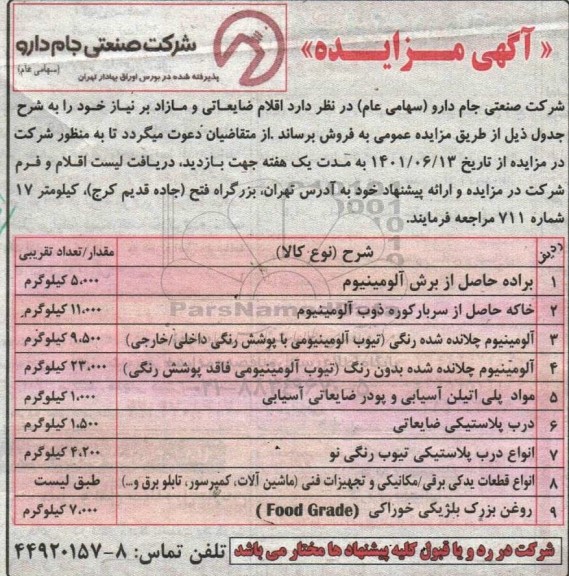 « آگهی مـزایـده»
شرکت صنعتی جام دارو
(سهامی عام)
پذیرفته شده در بورس اوراق بهادار تهران
شرکت صنعتی جام دارو (سهامی عام) در نظر دارد اقلام ضایعاتی و مازاد بر نیاز خود را به شرح
جدول ذیل از طریق مزایده عمومی به فروش برساند .از متقاضیان دعوت میگردد تا به منظور شرکت
در مزایده از تاریخ ۱۴۰۱/۰۶/۱۳ به مدت یک هفته جهت بازدید، دریافت لیست اقلام و فرم
شرکت در مزایده و ارائه پیشنهاد خود به آدرس تهران، بزرگراه فتح (جاده قدیم کرج)، کیلومتر ۱۷
شماره ۷۱۱ مراجعه فرمایند.
ردیف شرح (نوع کالا) مقدار/تعداد تقریبی
۱ براده حاصل از برش آلومینیوم ۵،۰۰۰ کیلوگرم
۲ خاکه حاصل از سربارکوره ذوب آلومینیوم ۱۱،۰۰۰ کیلوگرم
۳ آلومینیوم چلانده شده رنگی (تیوب آلومینیومی با پوشش رنگی داخلی/خارجی) ۹،۵۰۰ کیلوگرم
۴ آلومینیوم چلانده شده بدون رنگ (تیوپ آلومینیومی فاقد پوشش رنگی) ۲۳،۰۰۰ کیلوگرم
۵ مواد پلی اتیلن آسیابی و پودر ضایعاتی آسیابی ۱،۰۰۰ کیلوگرم
۶ درب پلاستیکی ضایعاتی ۱،۵۰۰ کیلوگرم
۷ انواع درب پلاستیکی تیوب رنگی نو ۴،۲۰۰ کیلوگرم
۸ انواع قطعات یدکی برقی/مکانیکی و تجهیزات فنی (ماشین آلات، کمپرسور، تابلو برق و...) طبق لیست
۹ روغن بزرک بلژیکی خوراکی (Food Grade) ۷،۰۰۰ کیلوگرم
شرکت در رد و یا قبول کلیه پیشنهاد ها مختار می باشد تلفن تماس: ۸-۴۴۹۲۰۱۵۷